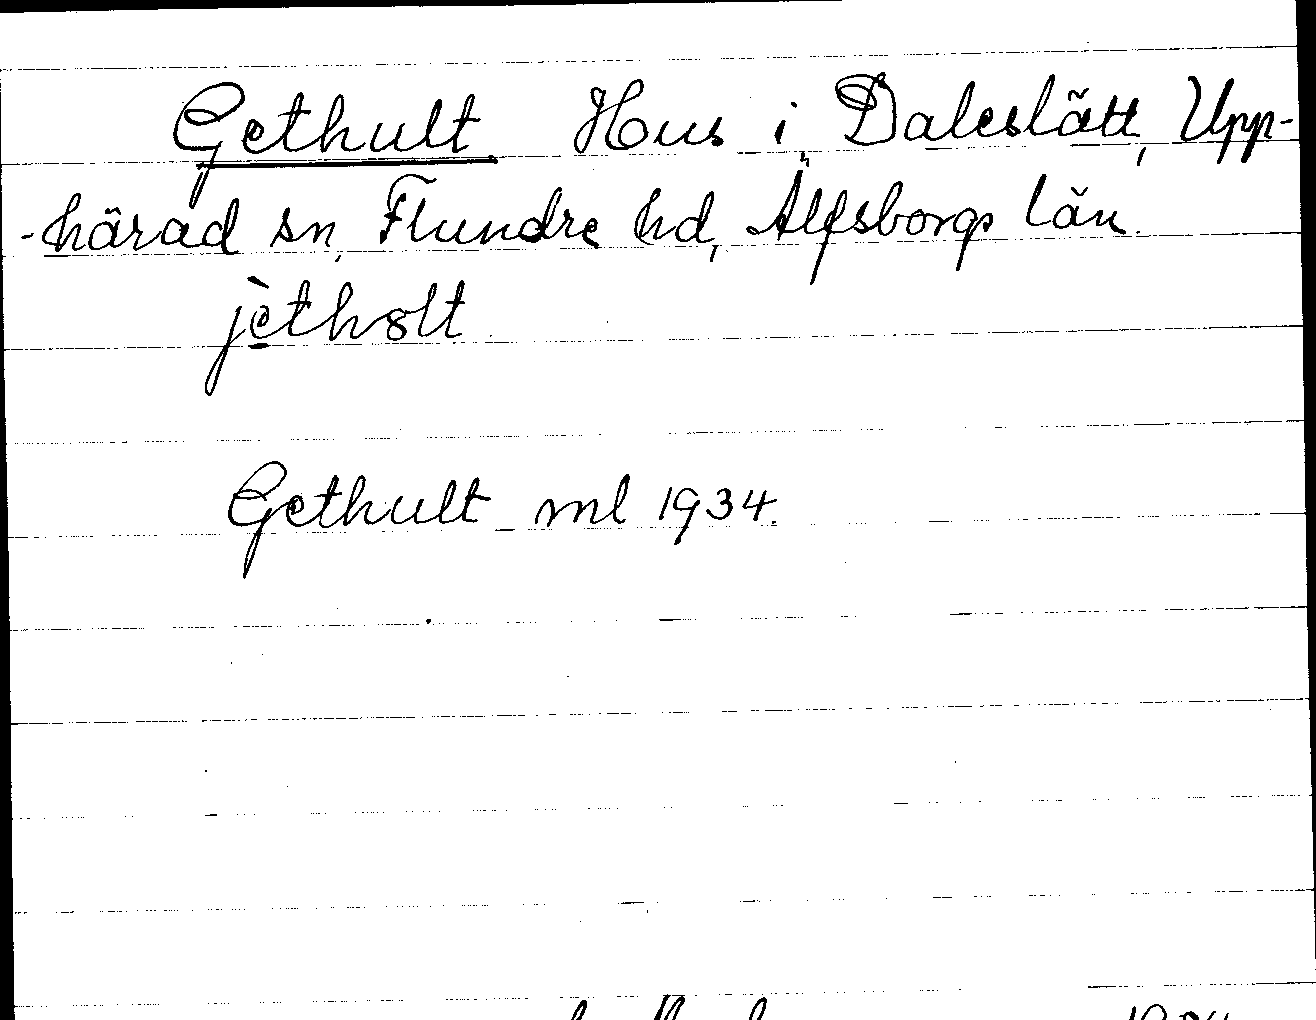 Gethult Hus i Daleslätt, Upp-
-härad sn, Flundre hd, Älfsborgs län.
jèthαlt
Gethult ml 1934.